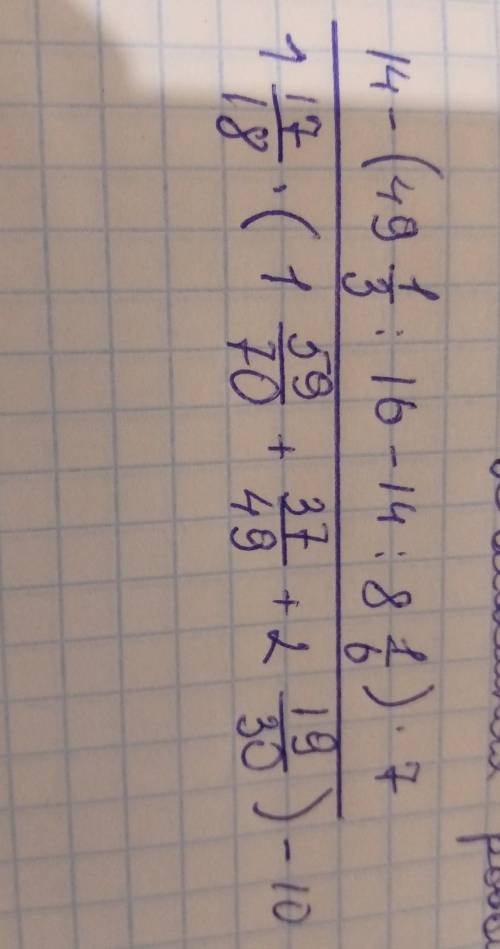 14 - (49 1/3 : 16 - 14 : 8 1/6) · 7
1 17/18 · (1 59/70 + 37/49 + 2 19/30) - 10